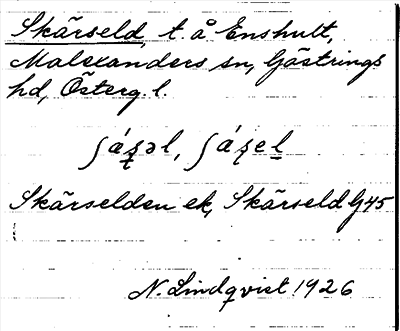 Skärseld, t. å Enshult,
Malexanders sn, Göstrings
hd, Österg. l.
ʃá̱ʂəl, ʃáʂel̲
Skärselden ek, Skärseld G45
N. Lindqvist 1926